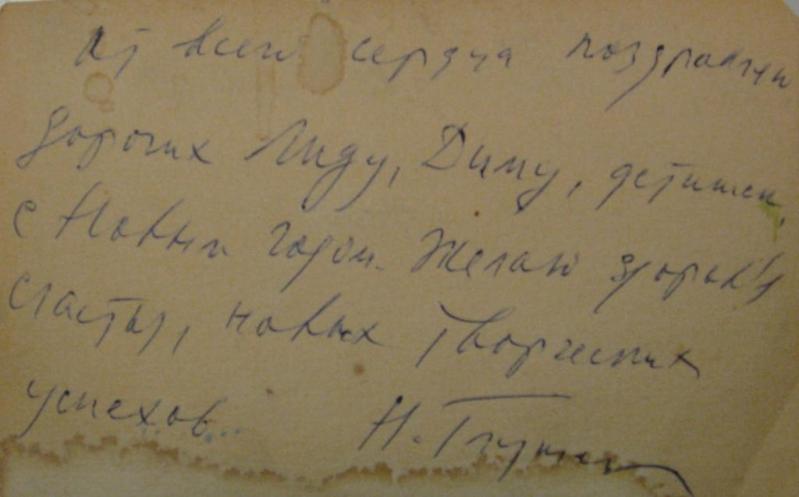 От всего сердца поздравляем
дорогих Лиду, Диму, детишек,
с Новым годом. Желаю здоровья
счастья, новых творческих
успехов.. Н.